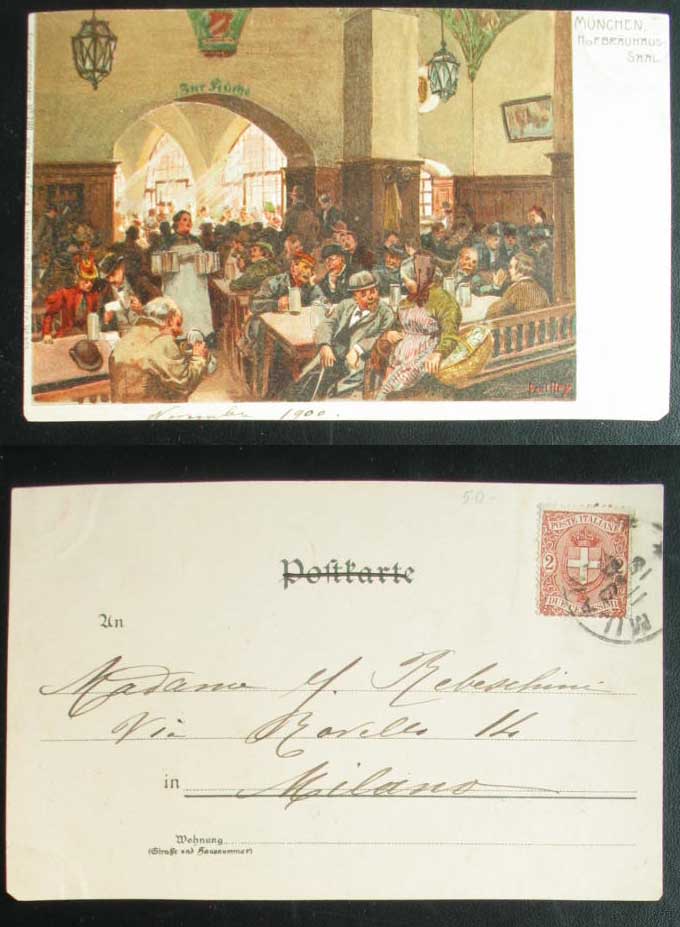 MÜNCHEN.
HOFBRÄUHAUS-
SAAL.
Zur Küche
November 1900.
50.-
POSTE ITALIANE
2 2
DUE CENTESIMI
Postkarte
An
Madame J. Rebeschini
Via Rovello 14
in Milano
Wohnung
(Straße und Hausnummer)